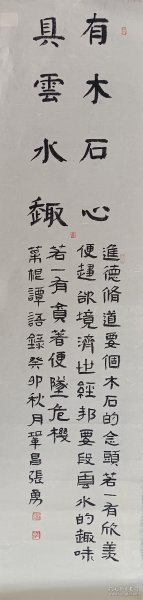 有木石心
具雲水趣
進德脩道要個木石的念頭若一有欣羡
便趨欲境濟世經邦要段雲水的趣味
若一有貪著便墜危機
菜根譚語錄癸卯秋月鞏昌張勇